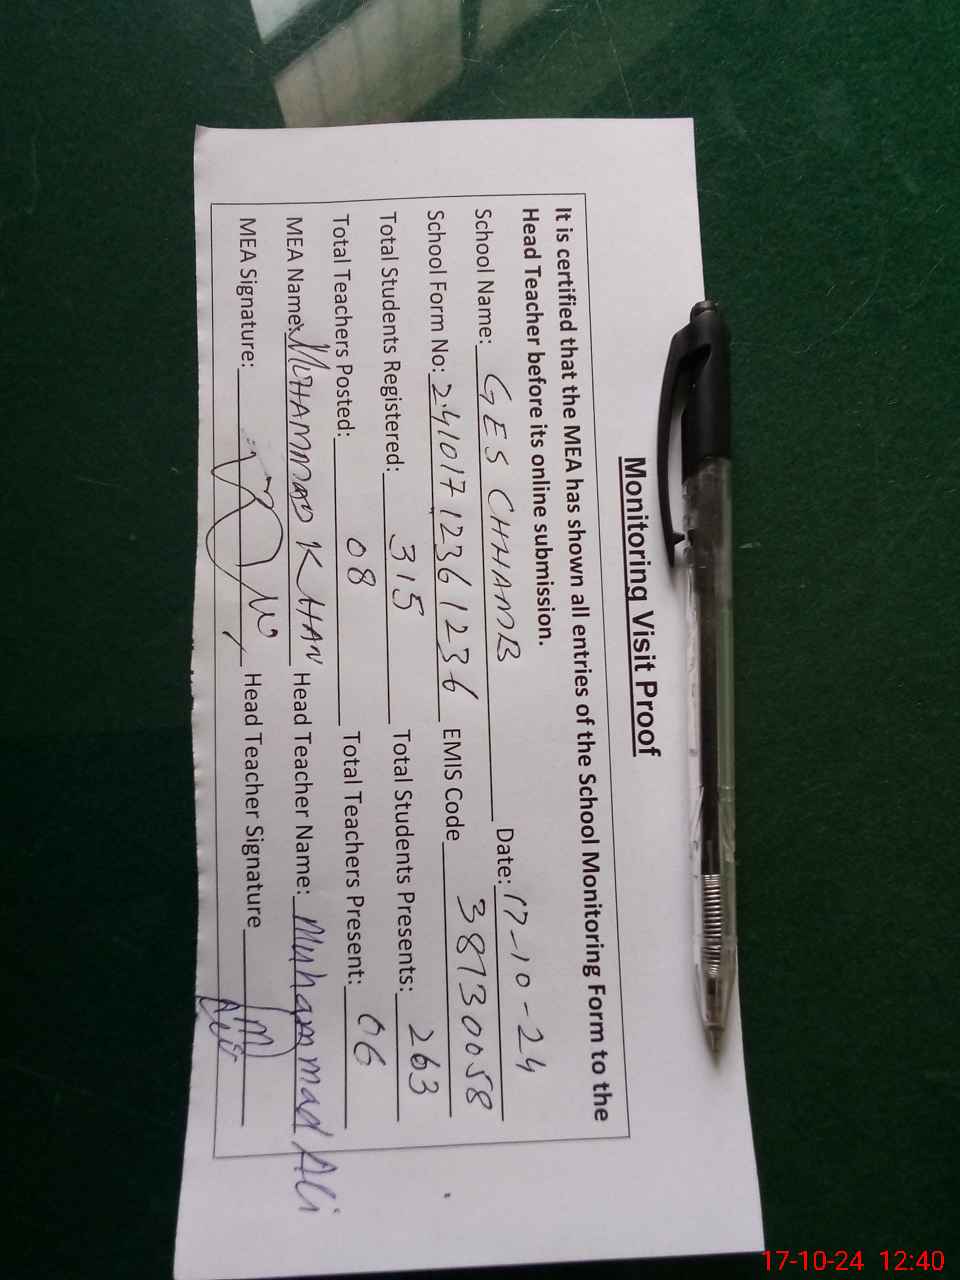 Monitoring Visit Proof
It is certified that the MEA has shown all entries of the School Monitoring Form to the
Head Teacher before its online submission.
School Name: GES CHHAMB Date: 17-10-24
School Form No: 24101712361236 EMIS Code 38730058
Total Students Registered: 315 Total Students Presents: 263
Total Teachers Posted: 08 Total Teachers Present: 06
MEA Name: MUHAMMAD KHAN Head Teacher Name: Muhammad Ali
MEA Signature: Head Teacher Signature
17-10-24 12:40